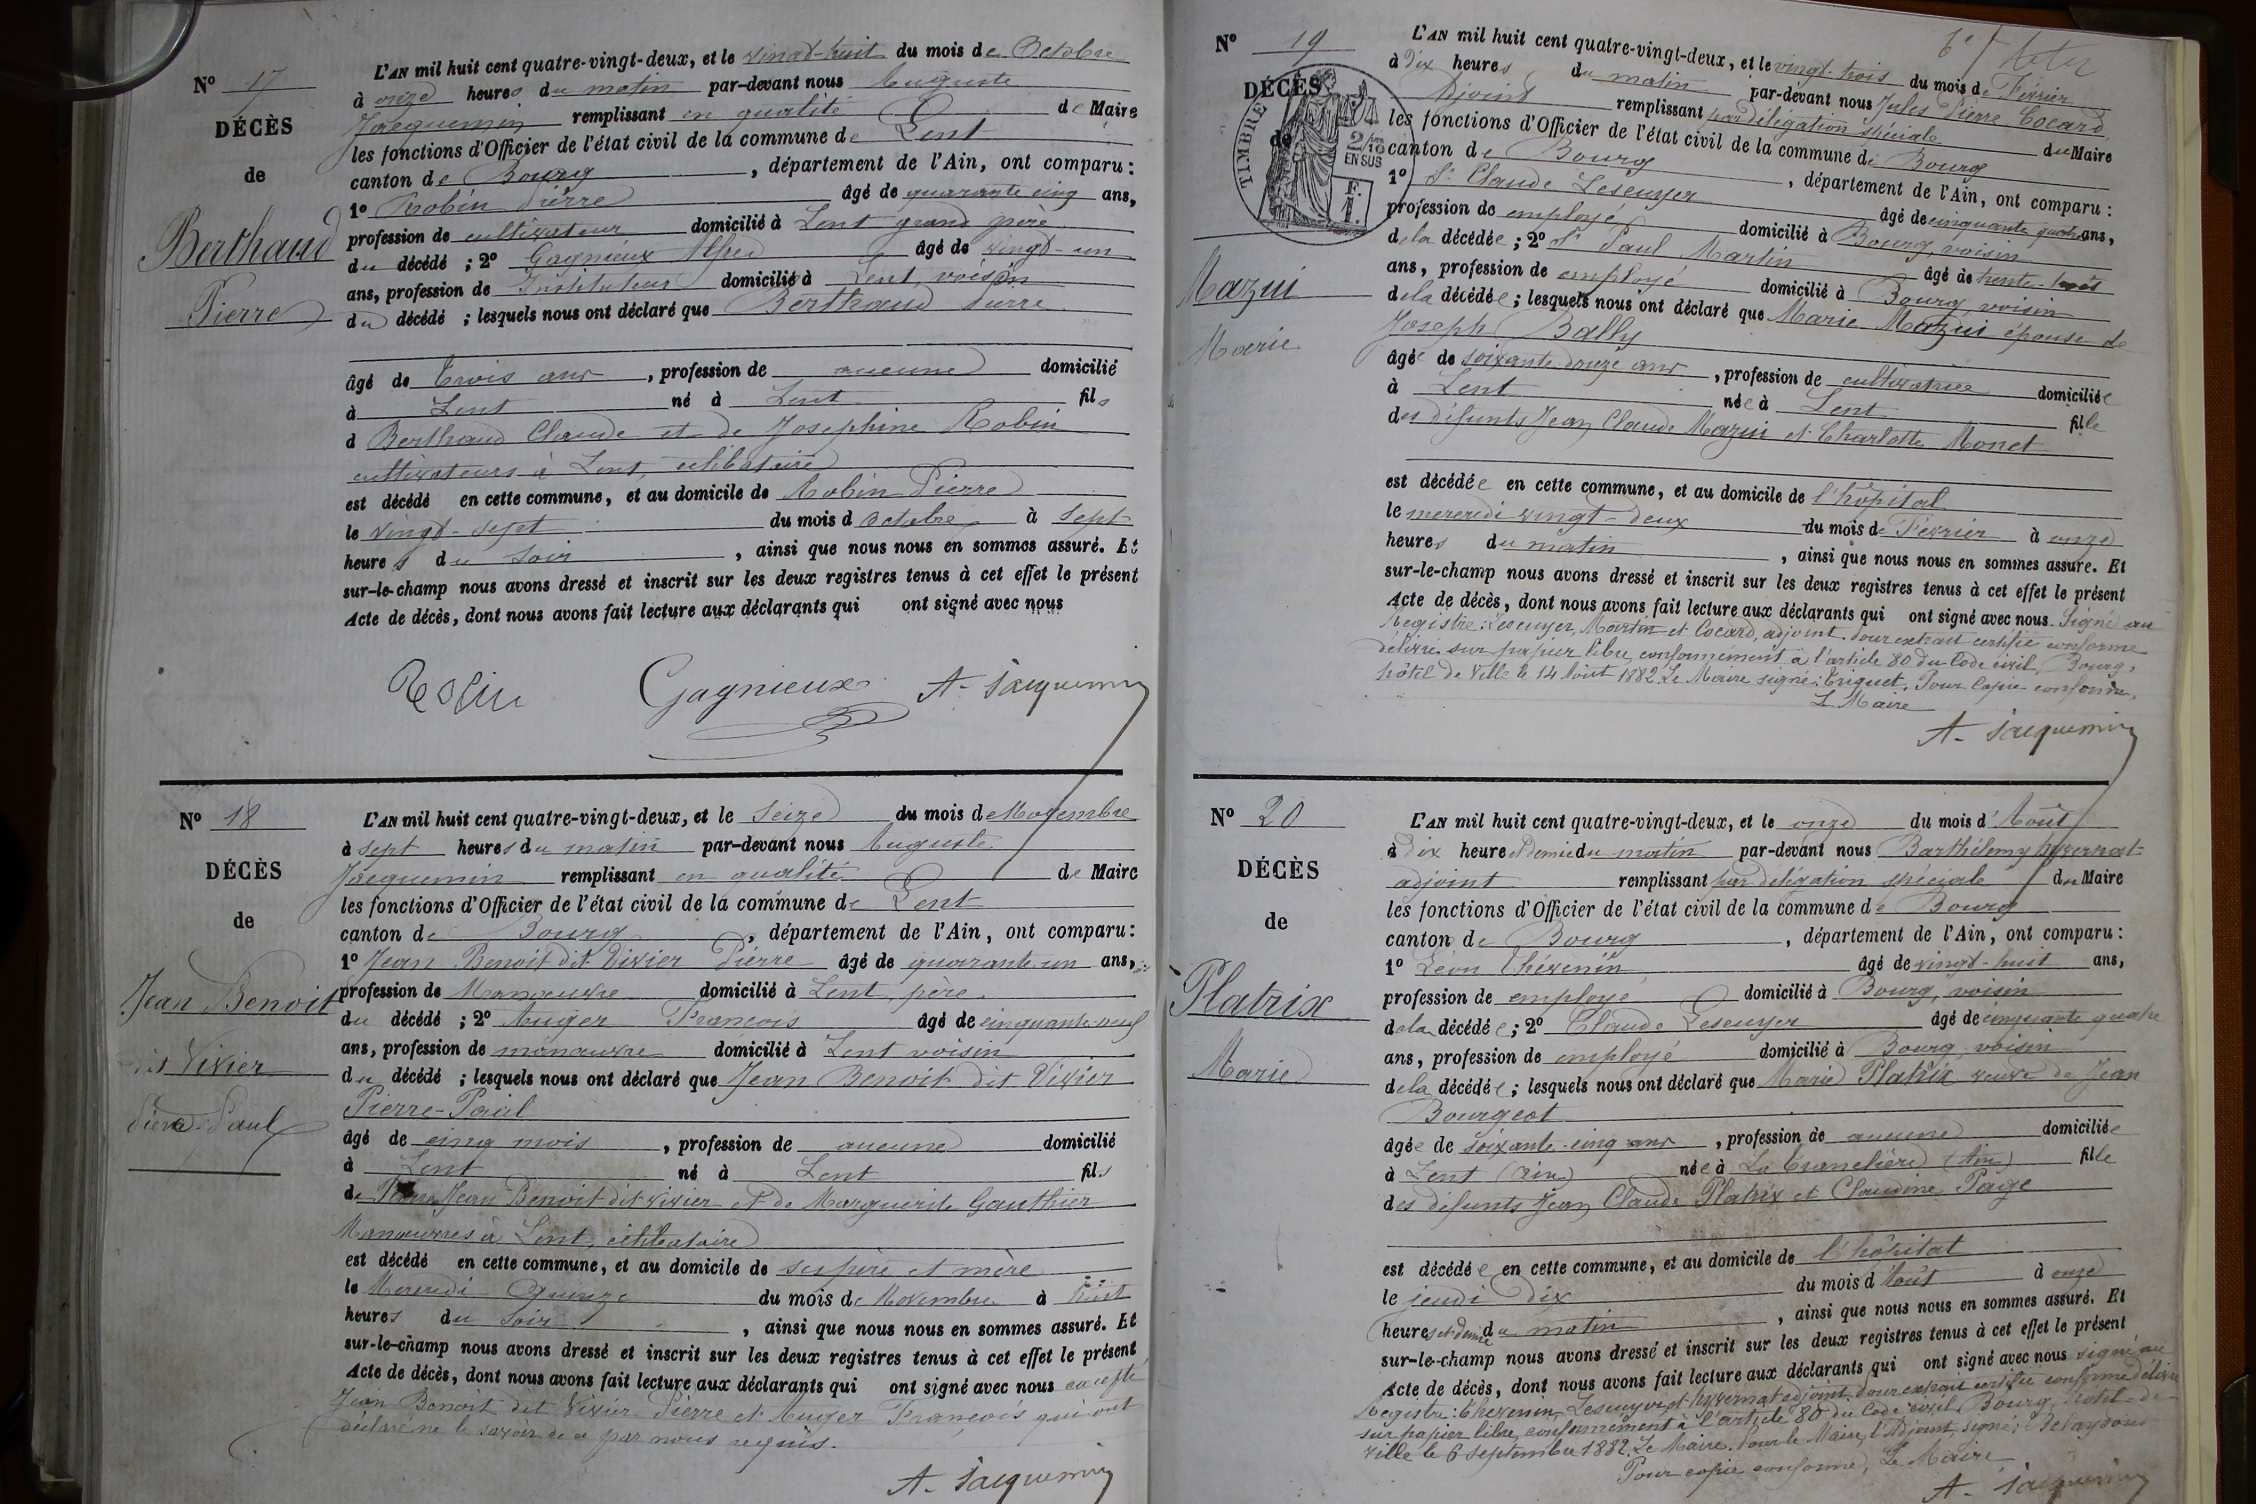 Nº 17
DÉCÈS
de
Berthaud
Pierre
L'AN mil huit cent quatre-vingt-deux, et le vingt-huit du mois de Octobre
à onze heures du matin par-devant nous Auguste
Jacquemin remplissant en qualité de Maire
les fonctions d'Officier de l'état civil de la commune de Lent
canton de Bourg, département de l'Ain, ont comparu :
1º Robin Pierre âgé de quarante cinq ans,
profession de cultivateur domicilié à Lent grand père
du décédé ; 2º Gagnieux Alfred âgé de vingt-un
ans, profession de Instituteur domicilié à Lent, voisin
du décédé ; lesquels nous ont déclaré que Berthaud Pierre
âgé de trois ans, profession de aucune domicilié
à Lent né à Lent fils
d Berthaud Claude et de Josephine Robin
cultivateurs à Lent, célibataire
est décédé en cette commune, et au domicile de Robin Pierre
le vingt-sept du mois d octobre à sept
heures du soir, ainsi que nous nous en sommes assuré. Et
sur-le-champ nous avons dressé et inscrit sur les deux registres tenus à cet effet le présent
Acte de décès, dont nous avons fait lecture aux déclarants qui ont signé avec nous
Robin Gagnieux A. Jacquemin
Nº 18
DÉCÈS
de
Jean Benoit
dit Vivier
Pierre Paul
L'AN mil huit cent quatre-vingt-deux, et le seize du mois de Novembre
à sept heures du matin par-devant nous Auguste
Jacquemin remplissant en qualité de Maire
les fonctions d'Officier de l'état civil de la commune de Lent
canton de Bourg, département de l'Ain, ont comparu :
1º Jean Benoit dit Vivier Pierre âgé de quarante un ans,
profession de Manoeuvre domicilié à Lent, père
du décédé ; 2º Auger François âgé de cinquante-neuf
ans, profession de manoeuvre domicilié à Lent voisin
du décédé ; lesquels nous ont déclaré que Jean Benoit dit Vivier
Pierre-Paul
âgé de cinq mois, profession de aucune domicilié
à Lent né à Lent fils
de Jean Benoit dit Vivier et de Marguerite Gauthier
Manoeuvres à Lent, célibataire
est décédé en cette commune, et au domicile de ses père et mère
le Mercredi Quinze du mois de Novembre à huit
heures du soir, ainsi que nous nous en sommes assuré. Et
sur-le-champ nous avons dressé et inscrit sur les deux registres tenus à cet effet le présent
Acte de décès, dont nous avons fait lecture aux déclarants qui ont signé avec nous excepté
Jean Benoit dit Vivier Pierre et Auger François qui ont
déclaré ne le savoir de ce par nous requis.
A. Jacquemin
Nº 19
DÉCÈS
de
TIMBRE
2/10 EN SUS
Mazui
Marie
L'AN mil huit cent quatre-vingt-deux, et le vingt-trois du mois de Février
à Dix heures du matin par-devant nous Jules Pierre Cocard
Adjoint remplissant par délégation spéciale du Maire
les fonctions d'Officier de l'état civil de la commune de Bourg
canton de Bourg, département de l'Ain, ont comparu :
1º Sr Claude Lescuyer âgé de cinquante quatre ans,
profession de employé domicilié à Bourg, voisin
de la décédée ; 2º Sr Paul Martin âgé de trente-trois
ans, profession de employé domicilié à Bourg, voisin
de la décédée ; lesquels nous ont déclaré que Marie Mazui épouse de
Joseph Bally
âgée de soixante-douze ans, profession de cultivatrice domiciliée
à Lent née à Lent fille
des défunts Jean Claude Mazui et Charlotte Monet
est décédée en cette commune, et au domicile de l'hôpital
le mercredi vingt-deux du mois de Février à onze
heures du matin, ainsi que nous nous en sommes assuré. Et
sur-le-champ nous avons dressé et inscrit sur les deux registres tenus à cet effet le présent
Acte de décès, dont nous avons fait lecture aux déclarants qui ont signé avec nous. Signé au
Registre : Lescuyer, Martin et Cocard, adjoint. Pour extrait certifié conforme
délivré sur papier libre conformément à l'article 80 du Code civil, Bourg,
hôtel de Ville le 14 Août 1882. Le Maire signé : Eriguet. Pour copie conforme.
Le Maire
A. Jacquemin
Nº 20
DÉCÈS
de
Platrix
Marie
L'AN mil huit cent quatre-vingt-deux, et le onze du mois d'Août
à Dix heures et demie du matin par-devant nous Barthélemy Hyvernat
adjoint remplissant par délégation spéciale du Maire
les fonctions d'Officier de l'état civil de la commune de Bourg
canton de Bourg, département de l'Ain, ont comparu :
1º Léon Chévenin âgé de vingt-huit ans,
profession de employé domicilié à Bourg, voisin
de la décédée ; 2º Claude Lescuyer âgé de cinquante quatre
ans, profession de employé domicilié à Bourg, voisin
de la décédée ; lesquels nous ont déclaré que Marie Platrix veuve de Jean
Bourgeot
âgée de soixante-cinq ans, profession de aucune domiciliée
à Lent (Ain) née à La Tranclière (Ain) fille
des défunts Jean Claude Platrix et Claudine Page
est décédée en cette commune, et au domicile de l'hôpital
le jeudi Dix du mois d'Août à onze
heures et demie du matin, ainsi que nous nous en sommes assuré. Et
sur-le-champ nous avons dressé et inscrit sur les deux registres tenus à cet effet le présent
Acte de décès, dont nous avons fait lecture aux déclarants qui ont signé avec nous signé au
Registre : Chévenin, Lescuyer et Hyvernat adjoint. Pour extrait certifié conforme délivré
sur papier libre, conformément à l'article 80 du Code civil, Bourg, hôtel-de-
ville le 6 septembre 1882. Le Maire. Pour le Maire, l'Adjoint, signé :
Pour copie conforme, Le Maire
A. Jacquemin